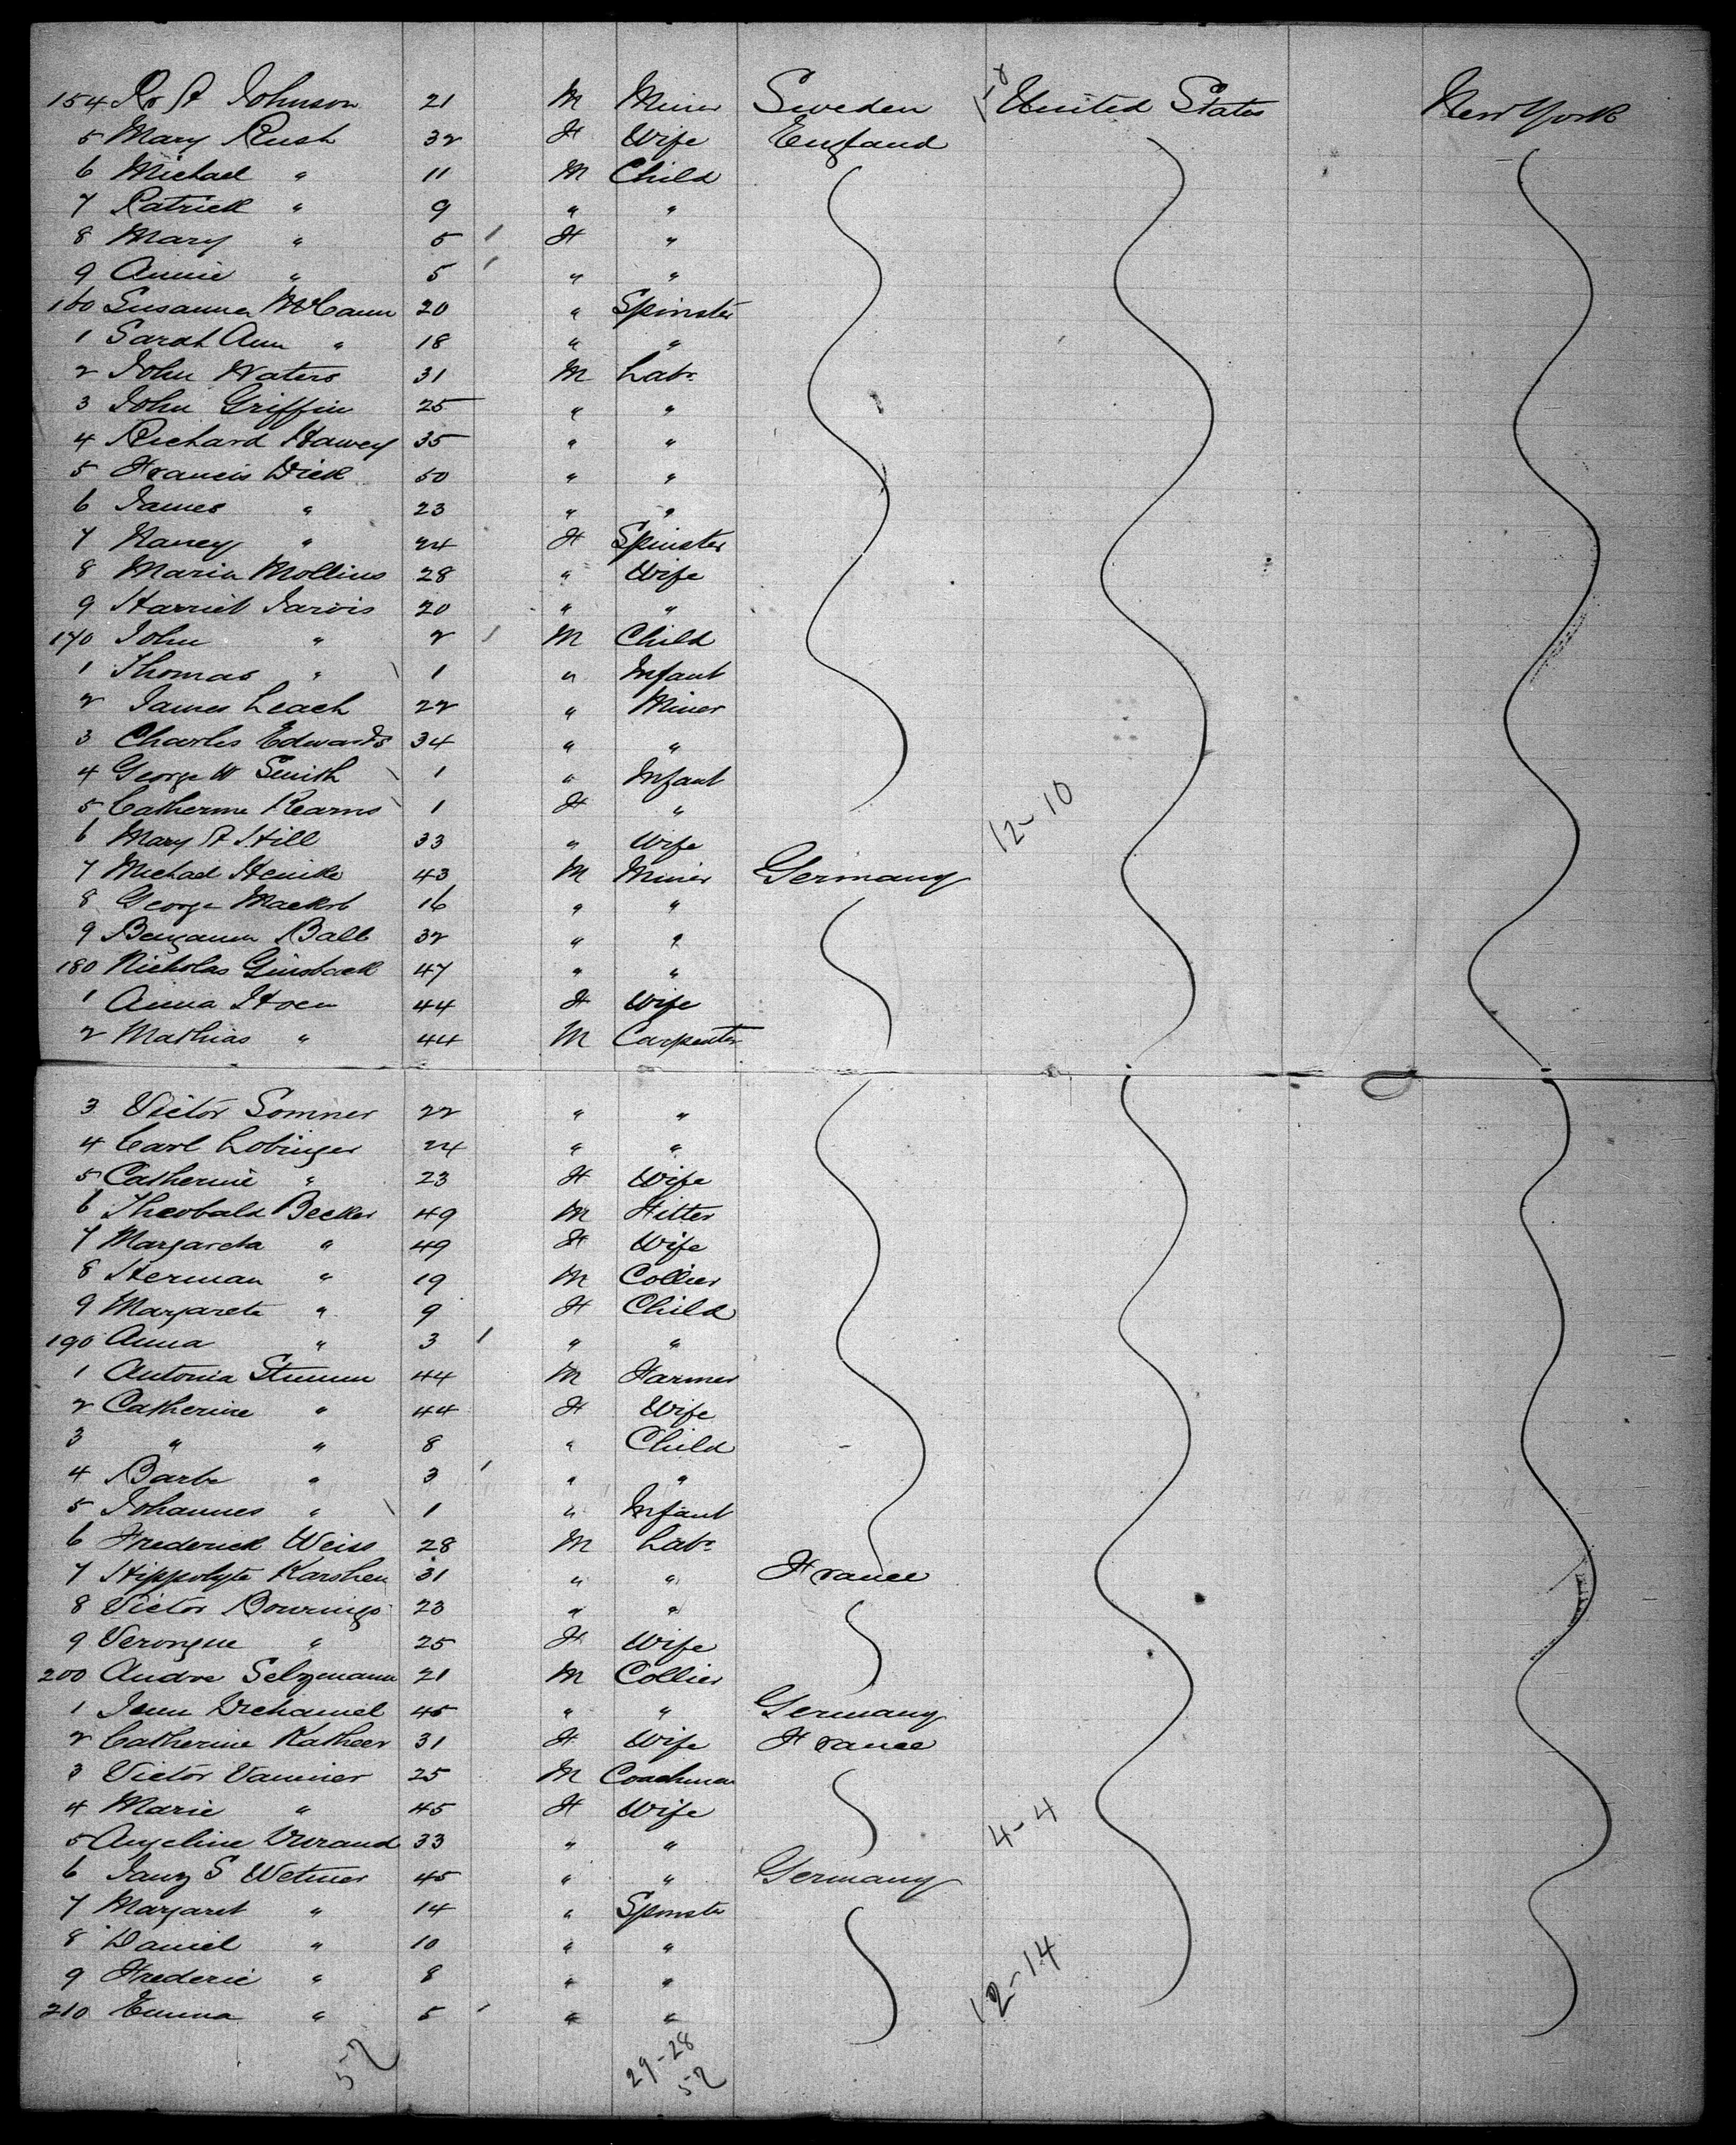 154 A Johnson 21 M Miner Sweden United States New York
5 Mary Rush 32 F Wife England
6 Michael " 11 M Child
7 Patrick " 9 " "
8 Mary " 5 F "
9 Annie " 5 " "
160 Susanna McCann 20 " Spinster
1 Sarah Ann " 18 " "
2 John Waters 31 M Labr
3 John Griffin 25 " "
4 Richard Hawey 35 " "
5 Francis Dick 50 " "
6 James " 23 " "
7 Nancy " 24 F Spinster
8 Maria Mollins 28 " Wife
9 Harriet Jarvis 20 " "
170 John " 2 M Child
1 Thomas " 1 " Infant
2 James Leach 22 " Miner
3 Charles Edwards 34 " "
4 George W Smith 1 " Infant
5 Catherine Kearns 1 F "
12-10
6 Mary A Hill 33 " Wife
7 Michael Henike 43 M Miner Germany
8 George 16 " "
9 Benjamin Ball 32 " "
180 Nicholas Ginsback 47 " "
1 Anna Hoen 44 F Wife
2 Mathias " 44 M Carpenter
3 Victor Somner 22 " "
4 Carl Lobinger 24 " "
5 Catherine " 23 F Wife
6 Theobald Becker 49 M Fitter
7 Margareta " 49 F Wife
8 Herman " 19 M Collier
9 Margareta " 9 F Child
190 Anna " 3 " "
1 Antonia Stumm 44 M Farmer
2 Catherine " 44 F Wife
3 " " 8 " Child
4 Barbe " 3 " "
5 Johannes " 1 " Infant
6 Frederick Weiss 28 M Labr
7 Hippolyte Karshen 31 " " France
8 Victor 23 " "
9 " 25 F Wife
200 Andre Selzmann 21 M Collier
1 45 " " Germany
2 Catherine Katheer 31 F Wife France
3 Victor Vannier 25 M Coachman
4 Marie " 45 F Wife
4-4
5 Angeline Durand 33 " "
6 S Wetmer 45 " " Germany
7 Margaret " 14 " Spinster
8 Daniel " 10 " "
9 Frederic " 8 " "
12-14
210 Emma " 5 " "
52 29-28
52